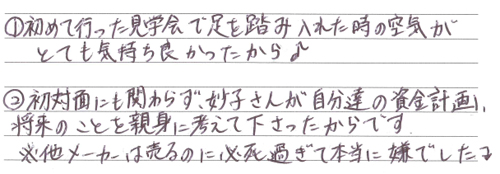 ①初めて行った見学会で足を踏み入れた時の空気が
とても気持ち良かったから♪
②初対面にも関わらず、妙子さんが自分達の資金計画、
将来のことを親身に考えて下さったからです
※他メーカーは売るのに必死過ぎて本当に嫌でした